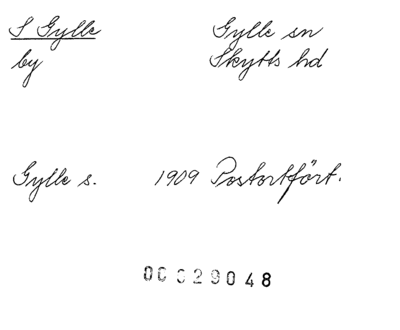 S Gylle Gylle sn
by Skytts hd
Gylle s. 1909 Postortfört.
00029048